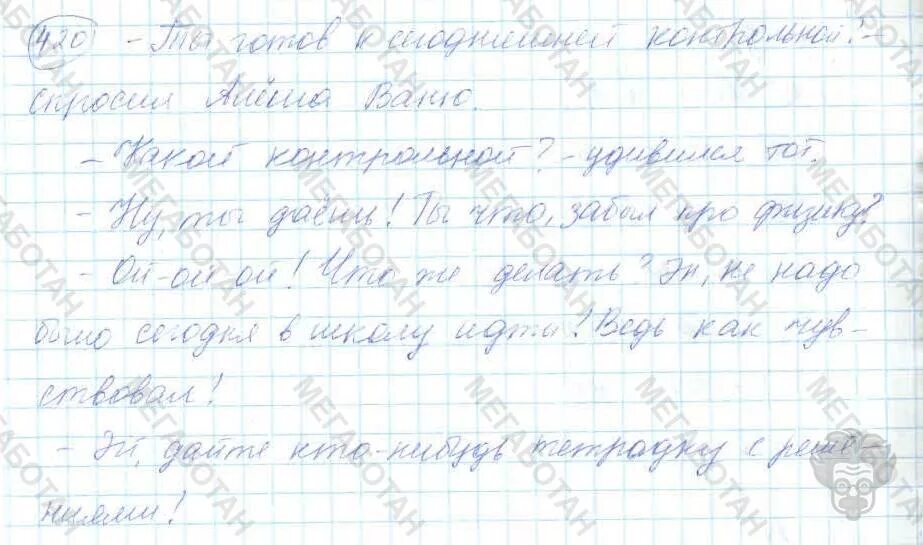 420 - Ты готов к сегодняшней контрольной? -
спросил Алёша Ваню.
- Какой контрольной? - удивился тот.
- Ну, ты даёшь! Ты что, забыл про физику?
- Ой-ой-ой! Что же делать? Эх, не надо
было сегодня в школу идти! Ведь как чув-
ствовал!
- Эй, дайте кто-нибудь тетрадку с реше-
ниями!
МЕГАБОТАН